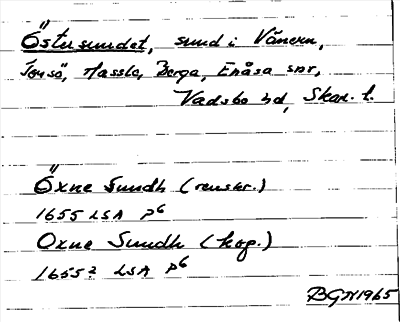 Östersundet, sund i Vänern,
Torsö, Hassle, Berga, Enåsa snr,
Vadsbo hd, Skar. l.
Öxne Sundh (renskr.)
1655 LSA P6
Oxne Sundh (kop.)
1655? LSA P6
BGN1965